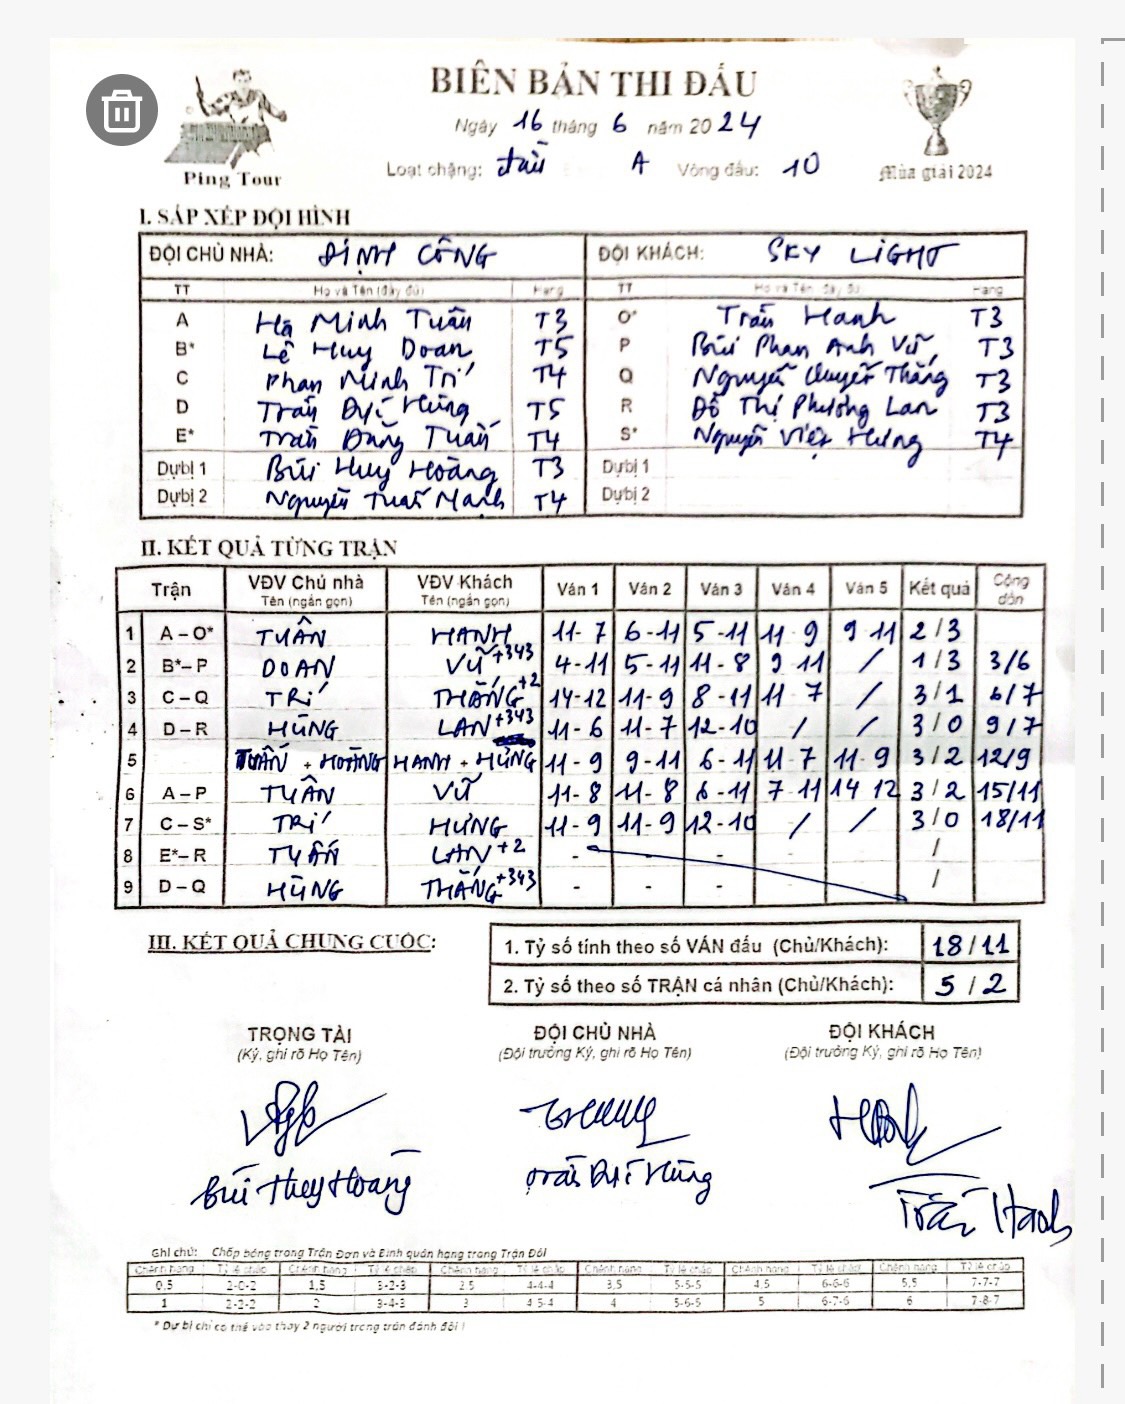 BIÊN BẢN THI ĐẤU
Ngày 16 tháng 6 năm 2024
Loạt chặng: A Vòng đấu: 10
Ping Tour
Mùa giải 2024
I. SẮP XẾP ĐỘI HÌNH
ĐỘI CHỦ NHÀ: ĐỊNH CÔNG ĐỘI KHÁCH: SKY LIGHT
TT Họ và Tên (đầy đủ) Hạng TT Họ và Tên (đầy đủ) Hạng
A Hà Minh Tuân T3 O* Trần Hanh T3
B* Lê Huy Doan T5 P Bùi Phan Anh Vũ T3
C Phan Minh Trí T4 Q Nguyễn Quyết Thắng T3
D Trần Đại Hùng T5 R Đỗ Thị Phương Lan T3
E* Trần Đăng Tuấn T4 S* Nguyễn Việt Hưng T4
Dự bị 1 Bùi Huy Hoàng T3 Dự bị 1
Dự bị 2 Nguyễn Tuấn Mạnh T4 Dự bị 2
II. KẾT QUẢ TỪNG TRẬN
Trận VĐV Chủ nhà VĐV Khách Ván 1 Ván 2 Ván 3 Ván 4 Ván 5 Kết quả Cộng dồn
Tên (ngắn gọn) Tên (ngắn gọn)
1 A – O* TUÂN HANH 11-7 6-11 5-11 11-9 9-11 2/3
2 B*– P DOAN VŨ +343 4-11 5-11 11-8 9-11 / 1/3 3/6
3 C – Q TRÍ THẮNG +2 14-12 11-9 8-11 11-7 / 3/1 6/7
4 D – R HÙNG LAN +343 11-6 11-7 12-10 / / 3/0 9/7
5 TUẤN + HOÀNG HANH + HƯNG 11-9 9-11 6-11 11-7 11-9 3/2 12/9
6 A – P TUÂN VŨ 11-8 11-8 6-11 7-11 14-12 3/2 15/11
7 C – S* TRÍ HƯNG 11-9 11-9 12-10 / / 3/0 18/11
8 E*– R TUẤN LAN +2 - - - - - /
9 D – Q HÙNG THẮNG +343 - - - - - /
III. KẾT QUẢ CHUNG CUỘC:
1. Tỷ số tính theo số VÁN đấu (Chủ/Khách): 18/11
2. Tỷ số theo số TRẬN cá nhân (Chủ/Khách): 5/2
TRỌNG TÀI ĐỘI CHỦ NHÀ ĐỘI KHÁCH
(Ký, ghi rõ Họ Tên) (Đội trưởng Ký, ghi rõ Họ Tên) (Đội trưởng Ký, ghi rõ Họ Tên)
Bùi Huy Hoàng Trần Đại Hùng Trần Hanh
Ghi chú: Chấp bóng trong Trận Đơn và Bình quân hạng trong Trận Đôi
Chênh hạng Tỷ lệ chấp Chênh hạng Tỷ lệ chấp Chênh hạng Tỷ lệ chấp Chênh hạng Tỷ lệ chấp Chênh hạng Tỷ lệ chấp Chênh hạng Tỷ lệ chấp
0,5 2-0-2 1,5 3-2-3 2,5 4-4-4 3,5 5-5-5 4,5 6-6-6 5,5 7-7-7
1 2-2-2 2 3-4-3 3 4-5-4 4 5-6-5 5 6-7-6 6 7-8-7
* Dự bị chỉ có thể vào thay 2 người trong trận đánh đôi !